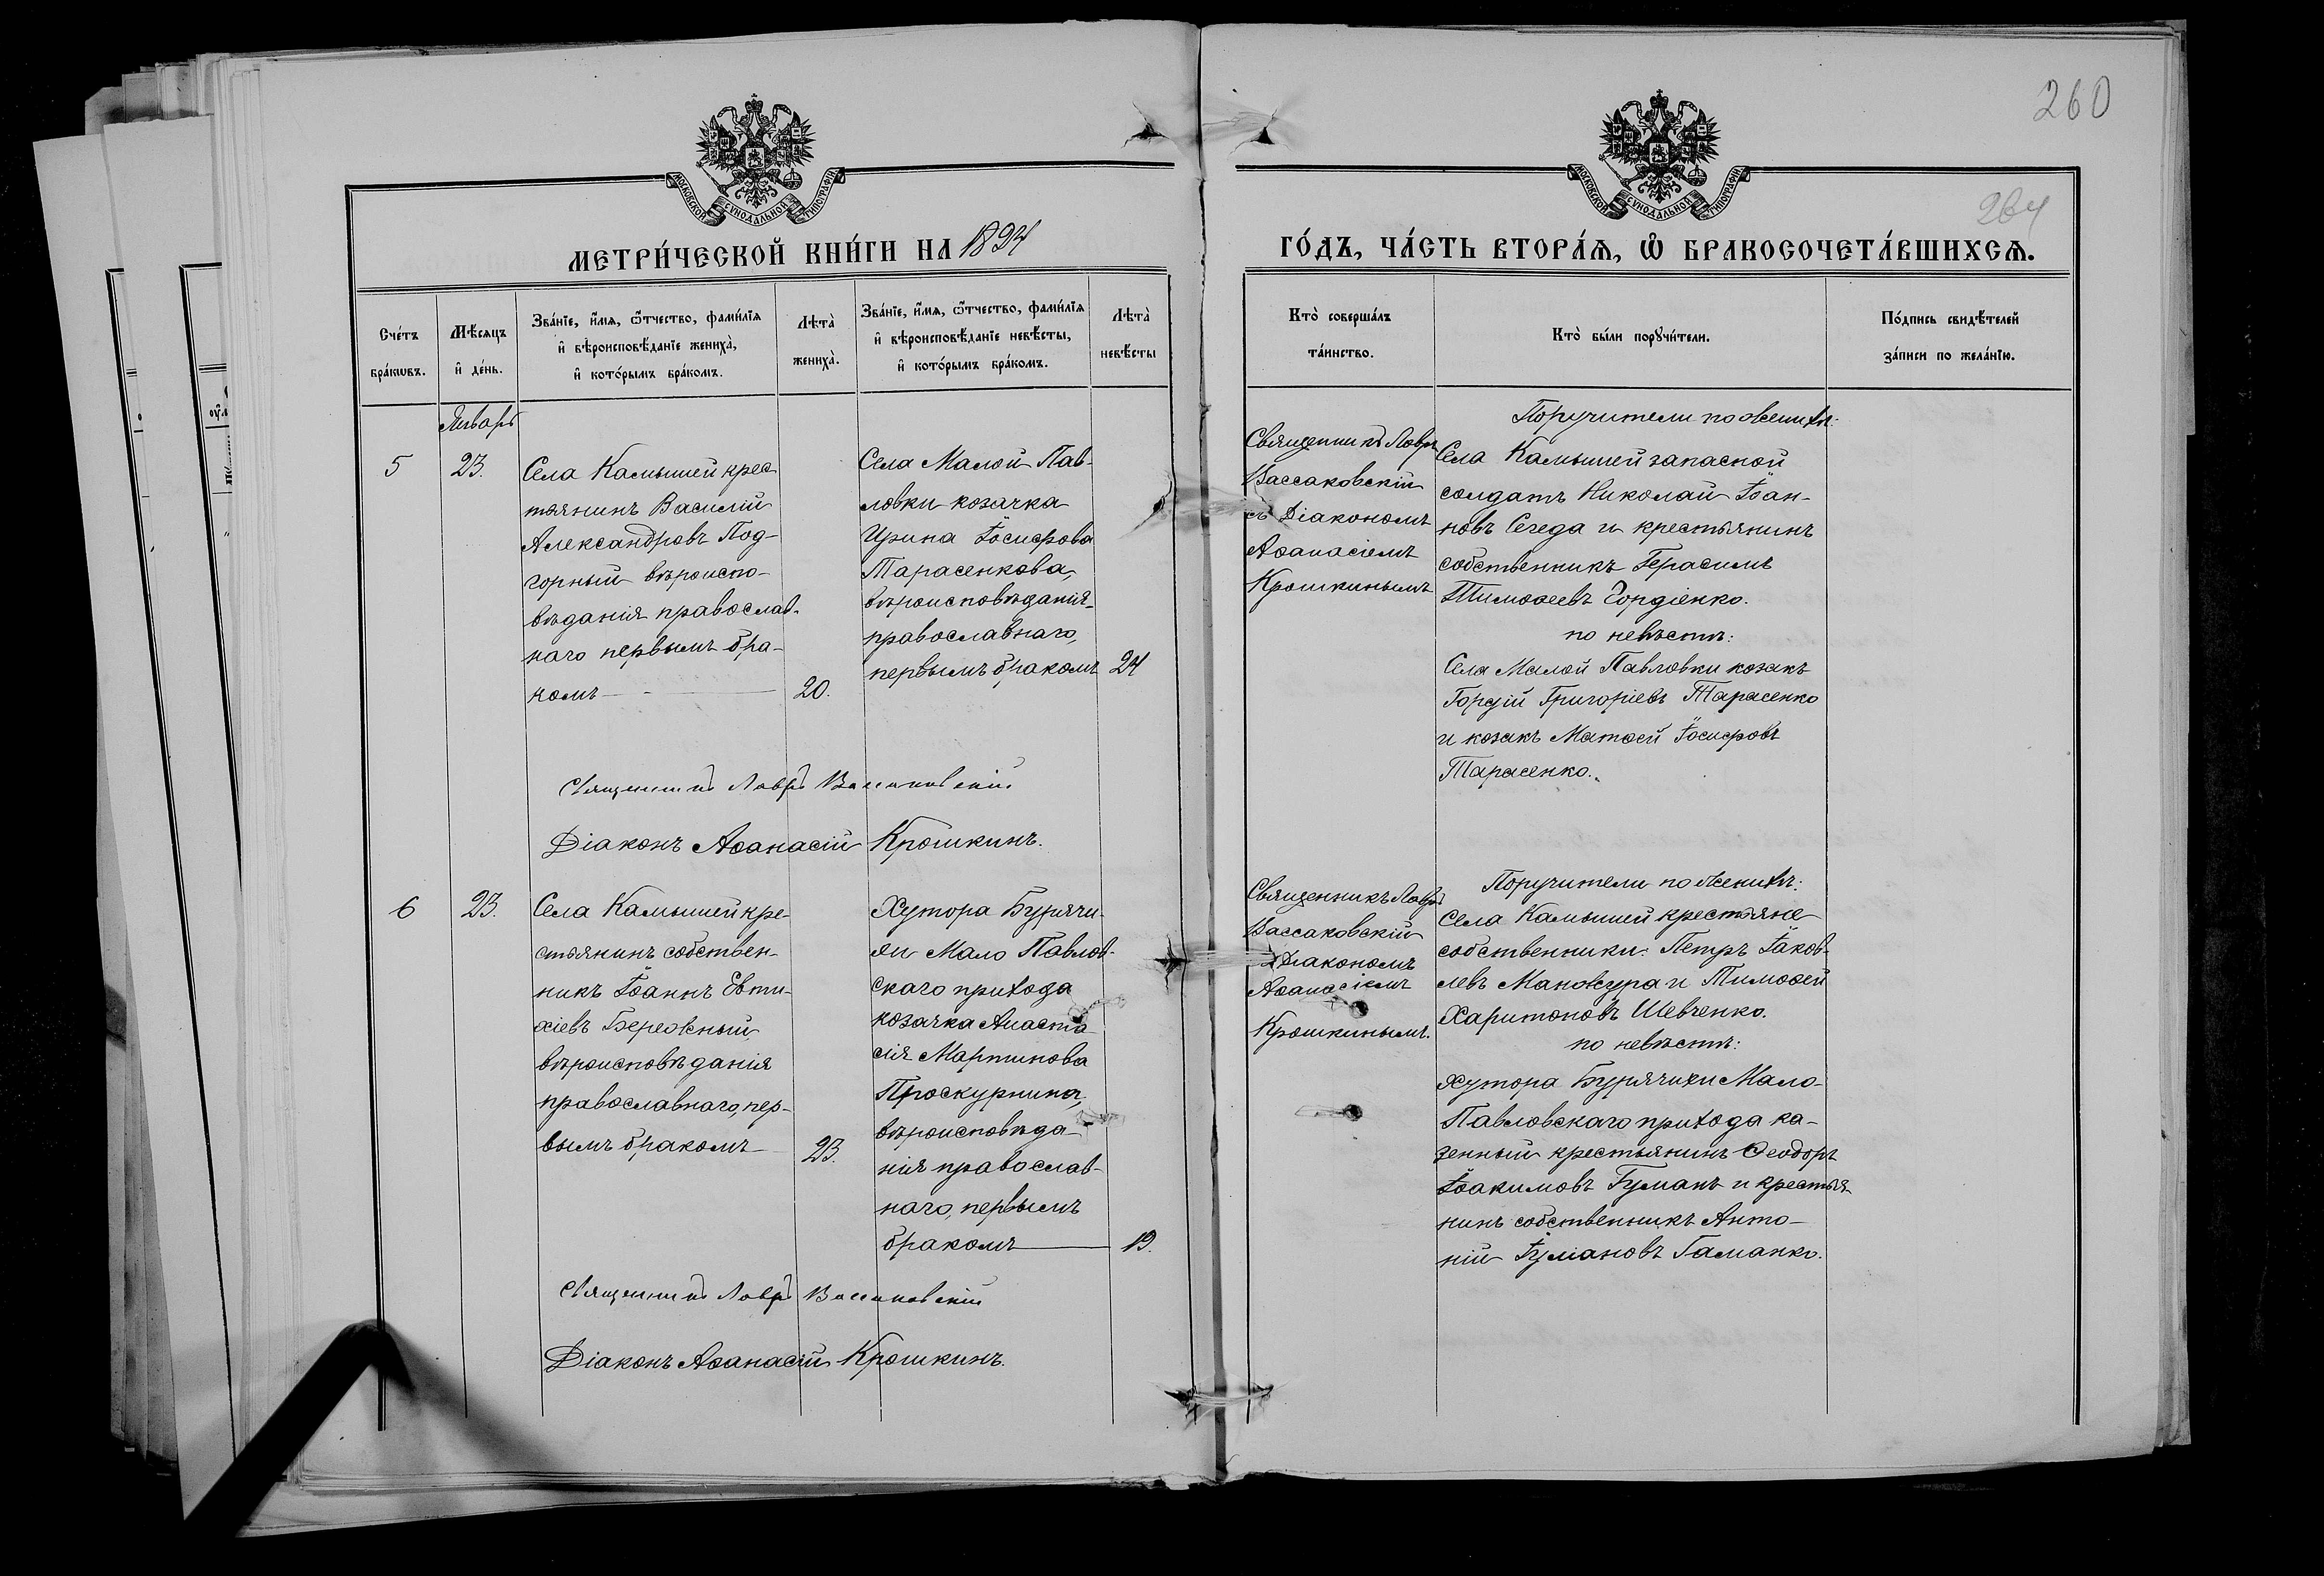 260
264
МОСКОВСКОЙ СѴНОДАЛЬНОЙ ТИПОГРАФІИ
МОСКОВСКОЙ СѴНОДАЛЬНОЙ ТИПОГРАФІИ
МЕТРИ́ЧЕСКОЙ КНИ́ГИ НА 1894
ГО́ДЪ, ЧА́СТЬ ВТОРА́Я, Ѡ БРАКОСОЧЕТА́ВШИХСЯ.
Сче́тъ
бра́кѡвъ.
Мѣ́сяцъ
и де́нь.
Зва́нїе, и́мя, ѻ́тчество, фами́лїя
и вѣроисповѣ́данїе жениха̀,
и кото́рымъ бра́комъ.
Лѣта̀
жениха̀.
Зва́нїе, и́мя, ѻ́тчество, фами́лїя
и вѣроисповѣ́данїе невѣ́сты,
и кото́рымъ бра́комъ.
Лѣта̀
невѣ́сты
Кто̀ соверша́лъ
та́инство.
Кто̀ бы́ли порꙋчи́тели.
По́дпись свидѣ́телей
за́писи по жела́нїю.
Январь
5
23.
Села Камышей крес
тьянинъ Василій
Александровъ Под-
горный вѣроиспо-
вѣданія православ-
наго первымъ бра-
комъ
20.
Села Малой Пав-
ловки козачка
Ирина Іосифова
Тарасенкова,
вѣроисповѣданія
православнаго,
первымъ бракомъ
24
Священникъ Лавръ
Вассаковскій
съ Діакономъ
Аѳанасіемъ
Крошкинымъ
Поручители по женихѣ:
Села Камышей запасной
солдатъ Николай Іоан-
новъ Середа и крестьянинъ
собственникъ Герасимъ
Тимоѳеевъ Гордіенко.
по невѣстѣ:
Села Малой Павловки козакъ
Гордій Григоріевъ Тарасенко
и козакъ Матѳей Іосифовъ
Тарасенко.
Священникъ Лавръ Вассаковскій
Діаконъ Аѳанасій Крошкинъ.
6
23.
Села Камышей кре-
стьянинъ собствен-
никъ Іоаннъ Евти-
хіевъ Бережный,
вѣроисповѣданія
православнаго, пер-
вымъ бракомъ
23.
Хутора Бурячи-
хи Мало Павлов-
скаго прихода
козачка Анаста
сія Мартинова
Проскурнина,
вѣроисповѣда-
нія православ-
наго, первымъ
бракомъ
19.
Священникъ Лавръ
Вассаковскій
съ Діакономъ
Аѳанасіемъ
Крошкинымъ.
Поручители по женихѣ:
Села Камышей крестьяне
собственники: Петръ Іаков-
левъ Мановсура и Тимоѳей
Харитоновъ Шевченко.
по невѣстѣ:
Хутора Бурячихи Мало-
Павловскаго прихода ка-
зенный крестьянинъ Ѳеодоръ
Іоакимовъ Гуманъ и крестья-
нинъ собственникъ Анто-
ній Іуліановъ Гаманко.
Священникъ Лавръ Вассаковскій
Діаконъ Аѳанасій Крошкинъ.